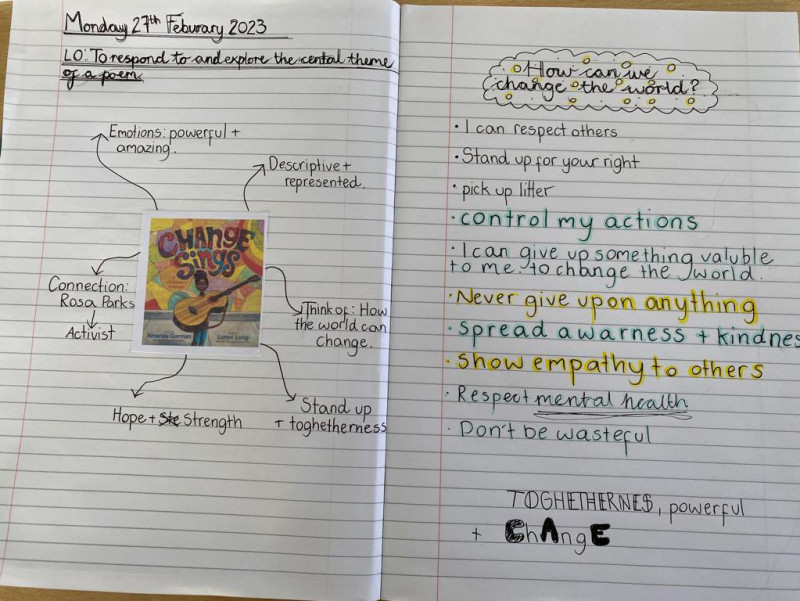 Monday 27th Feburary 2023
LO: To respond to and explore the cental theme
of a poem
Emotions: powerful +
amazing.
Descriptive +
represented.
CHANGE
SINGS
Amanda Gorman
Loren Long
Connection:
Rosa Parks
Activist
Think of: How
the world can
change.
Hope + Strength
Stand up
+ toghetherness
How can we
change the world?
· I can respect others
· Stand up for your right
· pick up litter
· control my actions
· I can give up something valuble
to me to change the world.
· Never give upon anything
· spread awarness + kindnes
· Show empathy to others
· Respect mental health
· Don't be wasteful
TOGHETHERNES, powerful
+ ChAngE